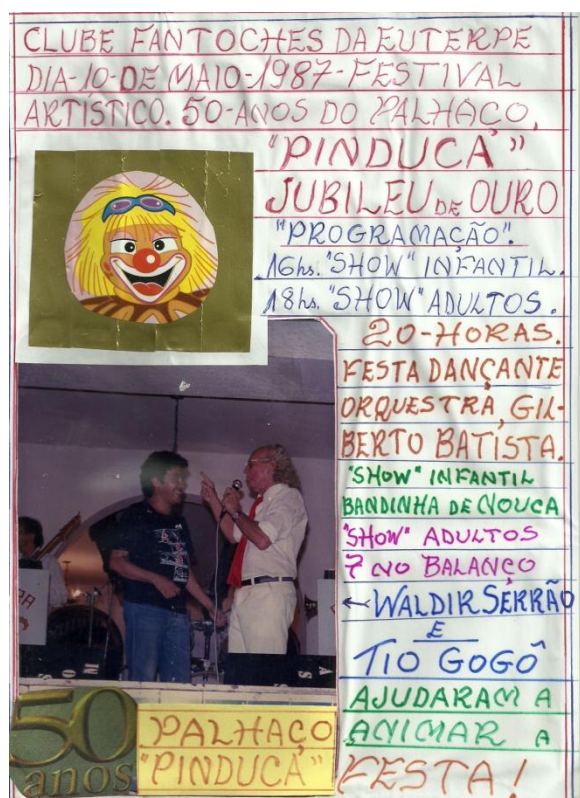 CLUBE FANTOCHES DA EUTERPE
DIA-10-DE MAIO-1987-FESTIVAL
ARTÍSTICO. 50-ANOS DO PALHAÇO,
"PINDUCA"
JUBILEU DE OURO
"PROGRAMAÇÃO".
16hs. "SHOW" INFANTIL.
18hs. "SHOW" ADULTOS.
20-HORAS.
FESTA DANÇANTE
ORQUESTRA, GIL-
BERTO BATISTA.
"SHOW" INFANTIL
BANDINHA DE NOUCA
"SHOW" ADULTOS
7 NO BALANÇO
← WALDIR SERRÃO
E
TIO GOGÔ
AJUDARAM A
ANIMAR A
FESTA!
50
anos
PALHAÇO
"PINDUCA"